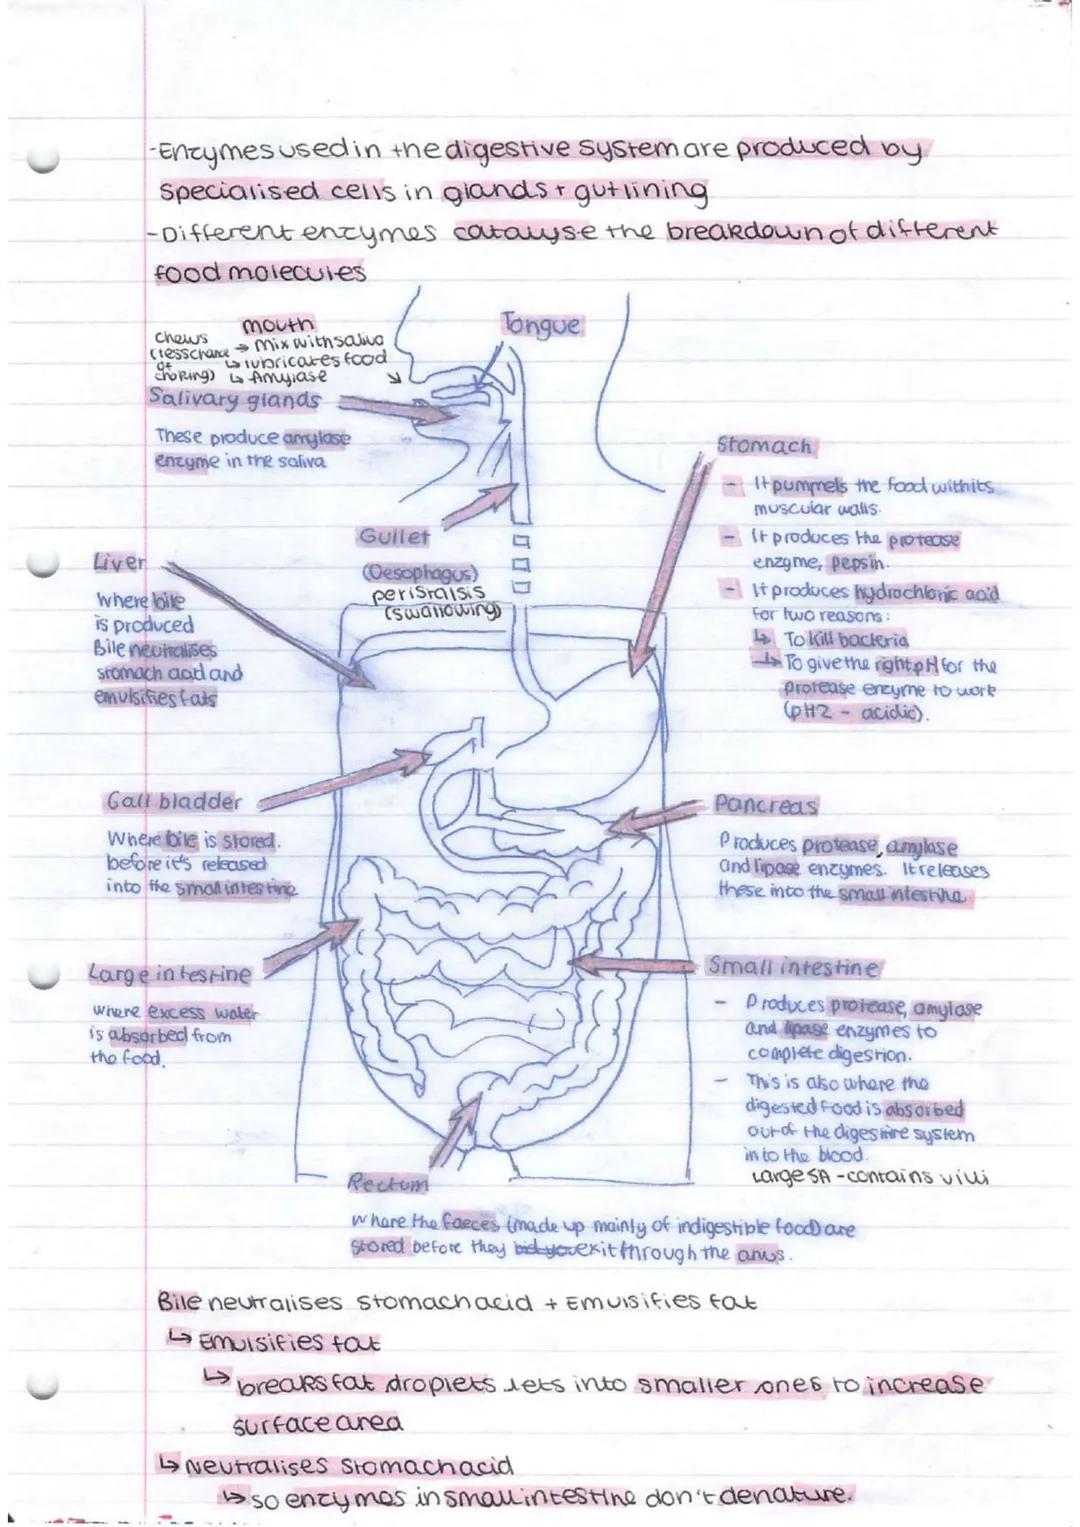 -Enzymes used in the digestive system are produced by
specialised cells in glands + gut lining
-Different enzymes catalyse the breakdown of different
food molecules
mouth
Tongue
chews → mix with saliva
(less chance ↳ lubricates food
of choking) ↳ Amylase
Salivary glands
These produce amylase
enzyme in the saliva
Gullet
(Oesophagus)
peristalsis
(swallowing)
Liver
Where bile
is produced
Bile neutralises
stomach acid and
emulsifies fats
Stomach
- It pummels the food with its
muscular walls.
- It produces the protease
enzyme, pepsin.
- It produces hydrochloric acid
for two reasons:
↳ To kill bacteria
↳ To give the right pH for the
protease enzyme to work
(pH2 - acidic).
Gall bladder
Where bile is stored.
before it's released
into the small intestine
Pancreas
Produces protease, amylase
and lipase enzymes. It releases
these into the small intestine.
Large intestine
where excess water
is absorbed from
the food.
Small intestine
- Produces protease, amylase
and lipase enzymes to
complete digestion.
- This is also where the
digested food is absorbed
out of the digestive system
into the blood.
Large SA - contains villi
Rectum
Where the faeces (made up mainly of indigestible food) are
stored before they exit through the anus.
Bile neutralises stomach acid + Emulsifies fat
↳ Emulsifies fat
↳ breaks fat droplets lets into smaller ones to increase
surface area
↳ Neutralises stomach acid
↳ so enzymes in small intestine don't denature.